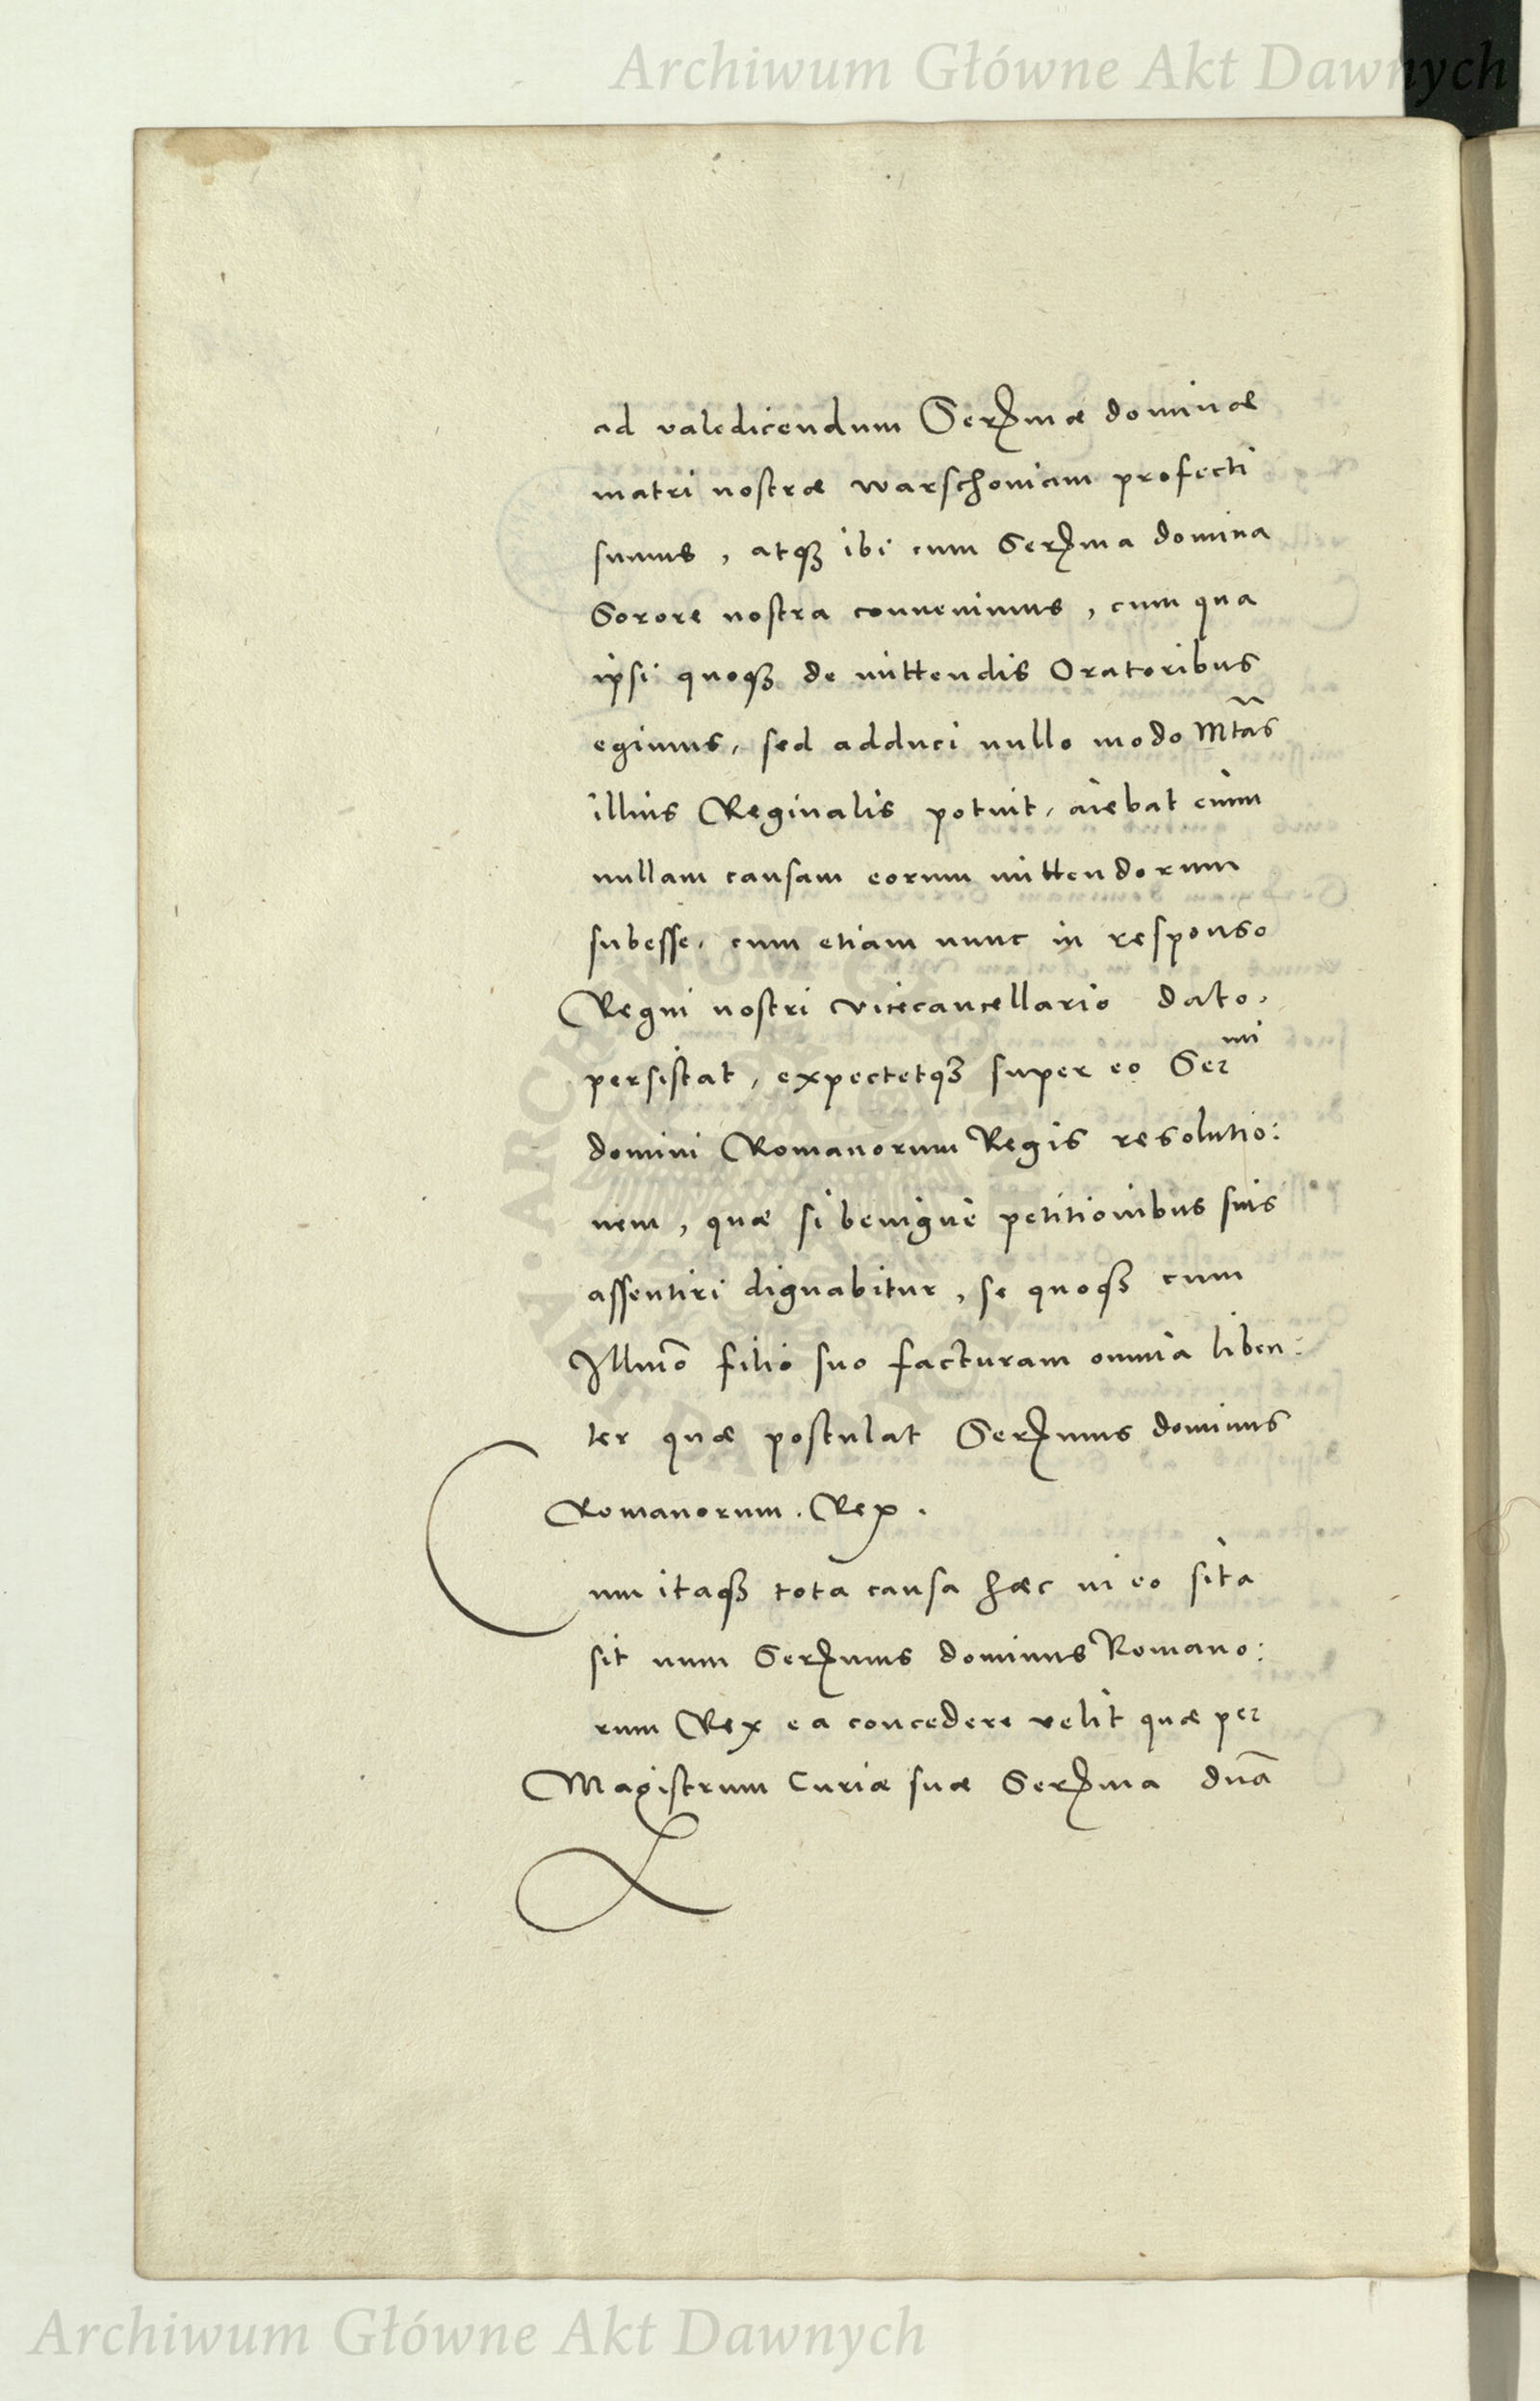 Archiwum Główne Akt Dawnych
ad valedicendum Serꝭmæ dominæ
matri nostræ warschoviam profecti
sumus, atqꝫ ibi cum Serꝭma domina
Sorore nostra convenimus, cum qua
ipsi quoqꝫ de mittendis Oratoribus
egimus, sed adduci nullo modo Mtãs
illius Reginalis potuit, aiebat enim
nullam causam eorum mittendorum
subesse, cum etiam nunc in responso
Regni nostri vicecancellario dato,
persistat, expectetqꝫ super eo Serᵐⁱ
domini Romanorum Regis resolutio:
nem, quæ si benignè petitionibus suis
assentiri dignabitur, se quoqꝫ cum
Illmõ filio suo facturam omnia liben:
ter quæ postulat Serꝭmus dominus
Romanorum. Rex.
Cum itaqꝫ tota causa hæc in eo sita
sit num Serꝭmus dominus Romano:
rum Rex ea concedere velit quæ per
Magistrum Curiæ suæ Serꝭma dnã
ARCHIWUM GŁÓWNE AKT DAWNYCH
Archiwum Główne Akt Dawnych